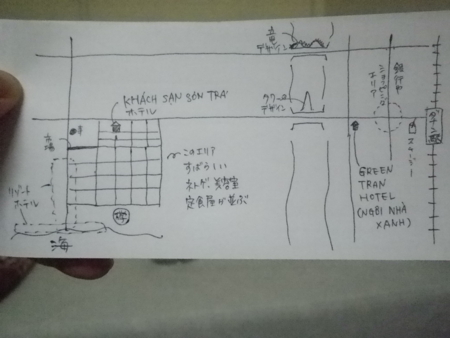 竜
デザイン
KHÁCH SẠN SƠN TRÀ
ホテル
タワーの
デザイン
銀行や
ショッピング
エリア
スーパー
GREEN
TRAN
HOTEL
(NGÔI NHÀ
XANH)
このエリア
すばらしい
ネトゲ、美容室
定食屋が並ぶ
リゾート
ホテル
海